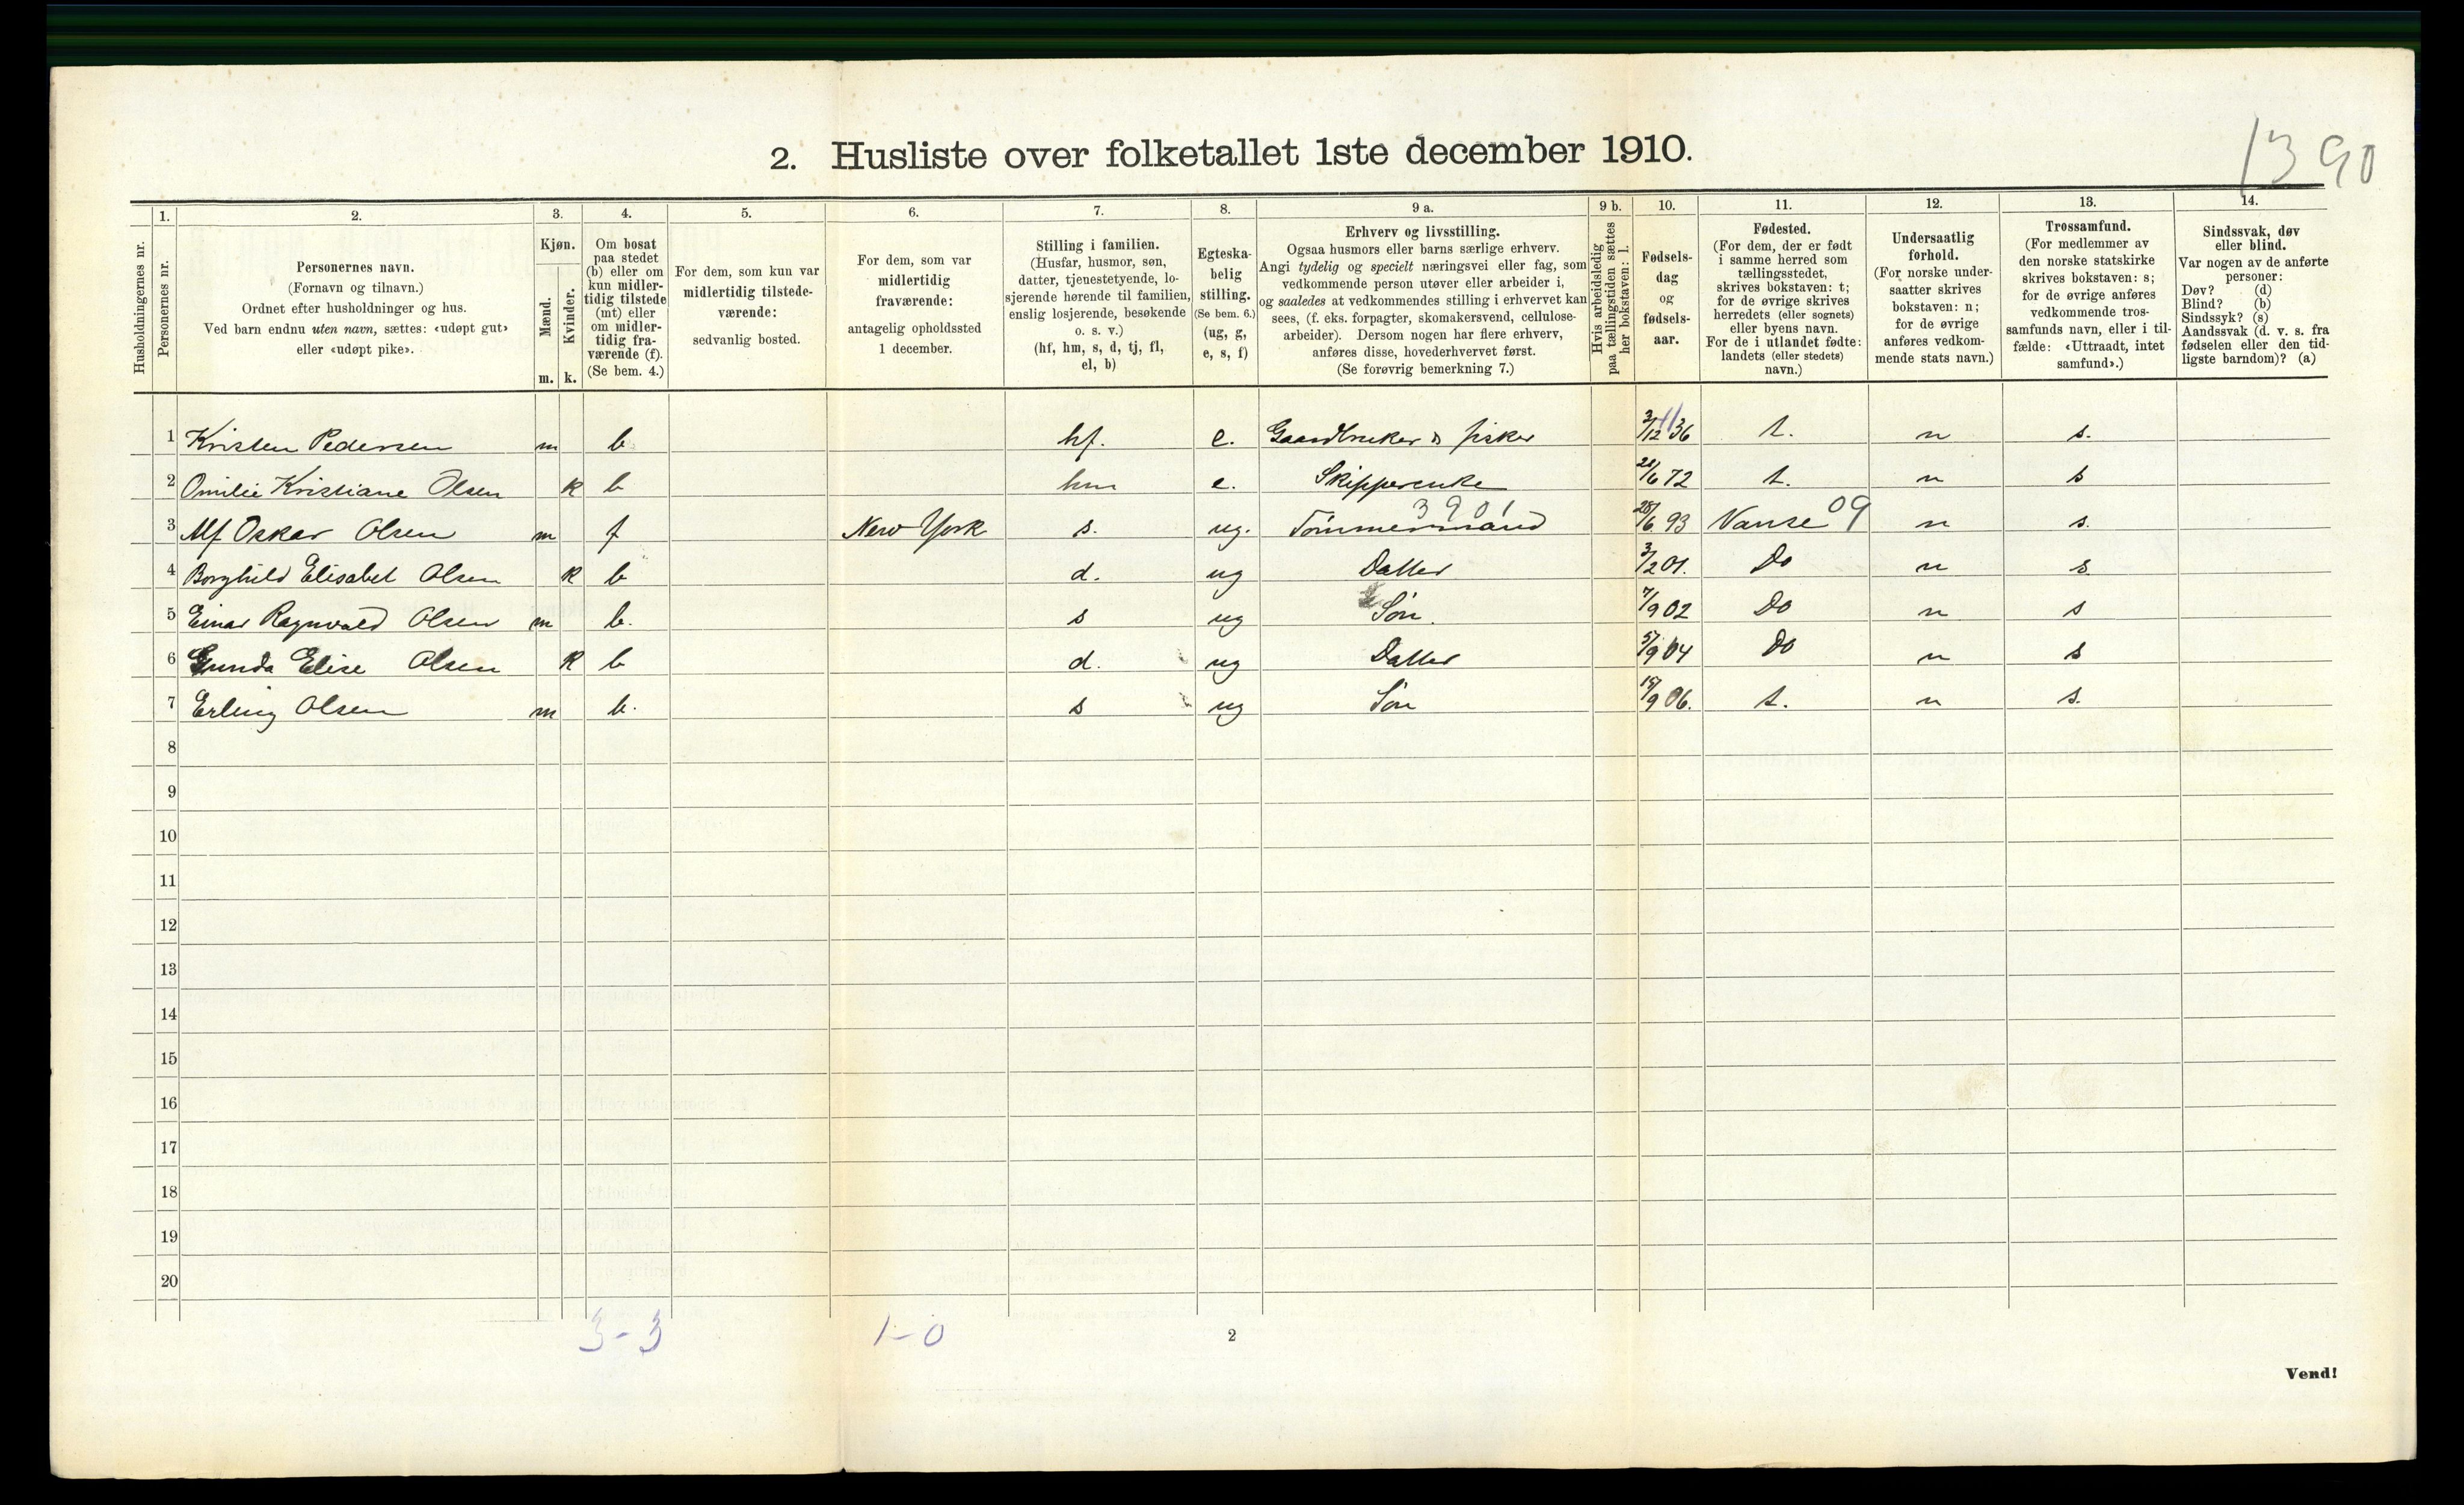 1390
2. Husliste over folketallet 1ste december 1910.
Husholdningernes nr.
1. Personernes nr.
2. Personernes navn. (Fornavn og tilnavn.) Ordnet efter husholdninger og hus. Ved barn endnu uten navn, sættes: «udøpt gut» eller «udøpt pike».
3. Kjøn. Mænd. m. Kvinder. k.
4. Om bosat paa stedet (b) eller om kun midlertidig tilstede (mt) eller om midlertidig fraværende (f). (Se bem. 4.)
5. For dem, som kun var midlertidig tilstedeværende: sedvanlig bosted.
6. For dem, som var midlertidig fraværende: antagelig opholdssted 1 december.
7. Stilling i familien. (Husfar, husmor, søn, datter, tjenestetyende, losjerende hørende til familien, enslig losjerende, besøkende o. s. v.) (hf, hm, s, d, tj, fl, el, b)
8. Egteskabelig stilling. (Se bem. 6.) (ug, g, e, s, f)
9 a. Erhverv og livsstilling. Ogsaa husmors eller barns særlige erhverv. Angi tydelig og specielt næringsvei eller fag, som vedkommende person utøver eller arbeider i, og saaledes at vedkommendes stilling i erhvervet kan sees, (f. eks. forpagter, skomakersvend, cellulosearbeider). Dersom nogen har flere erhverv, anføres disse, hovederhvervet først. (Se forøvrig bemerkning 7.)
9 b. Hvis arbeidsledig paa tællingstiden sættes her bokstaven: l.
10. Fødselsdag og fødselsaar.
11. Fødested. (For dem, der er født i samme herred som tællingsstedet, skrives bokstaven: t; for de øvrige skrives herredets (eller sognets) eller byens navn. For de i utlandet fødte: landets (eller stedets) navn.)
12. Undersaatlig forhold. (For norske undersaatter skrives bokstaven: n; for de øvrige anføres vedkommende stats navn.)
13. Trossamfund. (For medlemmer av den norske statskirke skrives bokstaven: s; for de øvrige anføres vedkommende trossamfunds navn, eller i tilfælde: «Uttraadt, intet samfund».)
14. Sindssvak, døv eller blind. Var nogen av de anførte personer: Døv? (d) Blind? (b) Sindssyk? (s) Aandssvak (d. v. s. fra fødselen eller den tidligste barndom)? (a)
1 Kristen Pedersen m b hf. e. Gaardbruker & fisker 3/12 36 11 t. n s.
2 Omilie Kristiane Olsen k b hm e. Skipperenke 21/6 72 t. n s
3901
3 Alf Oskar Olsen m f New York s. ug. Tømmermand 28/6 93 Vanse 09 n s.
4 Borghild Elisabet Olsen k b d. ug Datter 3/2 01. Do n s
5 Einar Ragnvald Olsen m b. s ug Søn. 7/9 02 Do n s
6 Gunda Elise Olsen k b d. ug Datter 5/9 04 Do n s
7 Erling Olsen m b. s ug Søn 15/9 06. t. n s.
8
9
10
11
12
13
14
15
16
17
18
19
20
3-3 1-0
2
Vend!